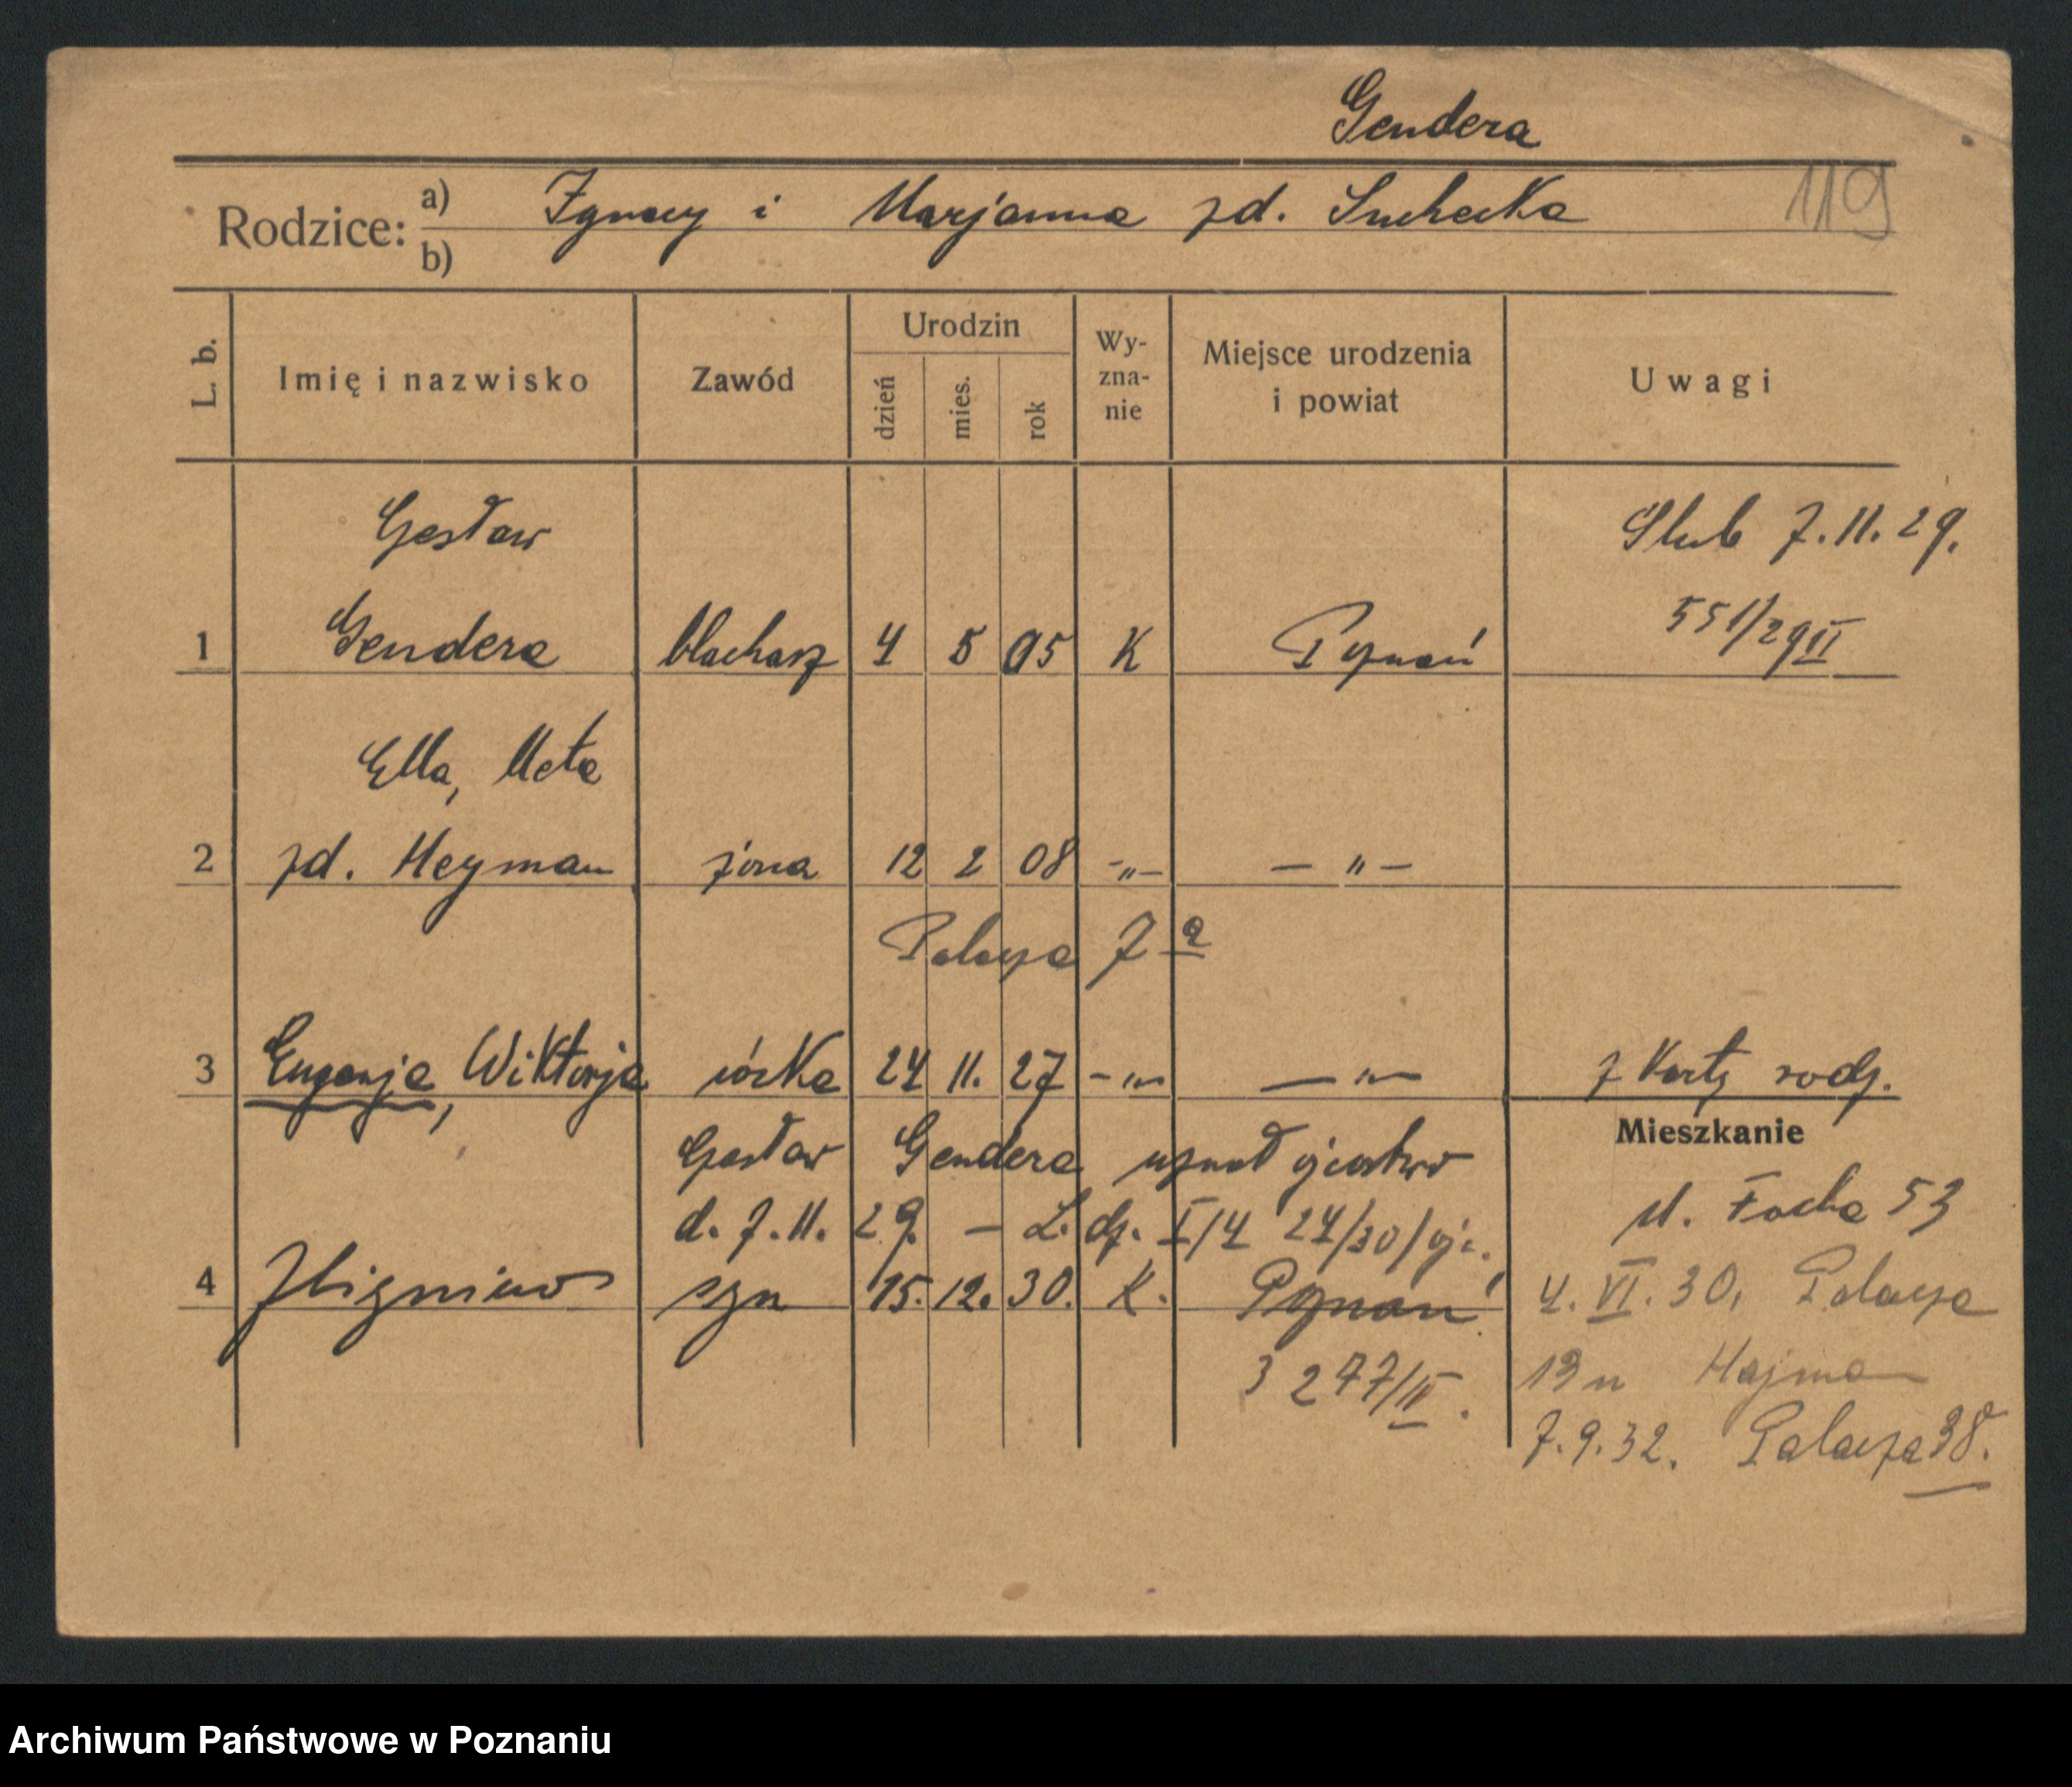 Gendera
119
Rodzice: a) Ignacy i Marjanna zd. Suchecka
b)
L. b. Imię i nazwisko Zawód Urodzin dzień mies. rok Wy-zna-nie Miejsce urodzenia i powiat Uwagi
Czesław Ślub 7.11.29.
1 Gendera blacharz 4 5 05 K Poznań 551/29 II
Ella, Meta
2 zd. Heyman żona 12 2 08 -„- - „ -
Palacza 7a
3 Eugenja, Wiktorja córka 24 11. 27 -„- - „ - z karty rodz.
Mieszkanie
Czesław Gendera uznał ojcostwo
ul. Focha 53
d. 7.11.29. - L. dz. I/4 24/30/ojc.
4 Zbigniew syn 15. 12. 30. K. Poznań 4.VI.30, Palacza
3277/II. 13 u Hajman
7.9.32. Palacza 38.
Archiwum Państwowe w Poznaniu